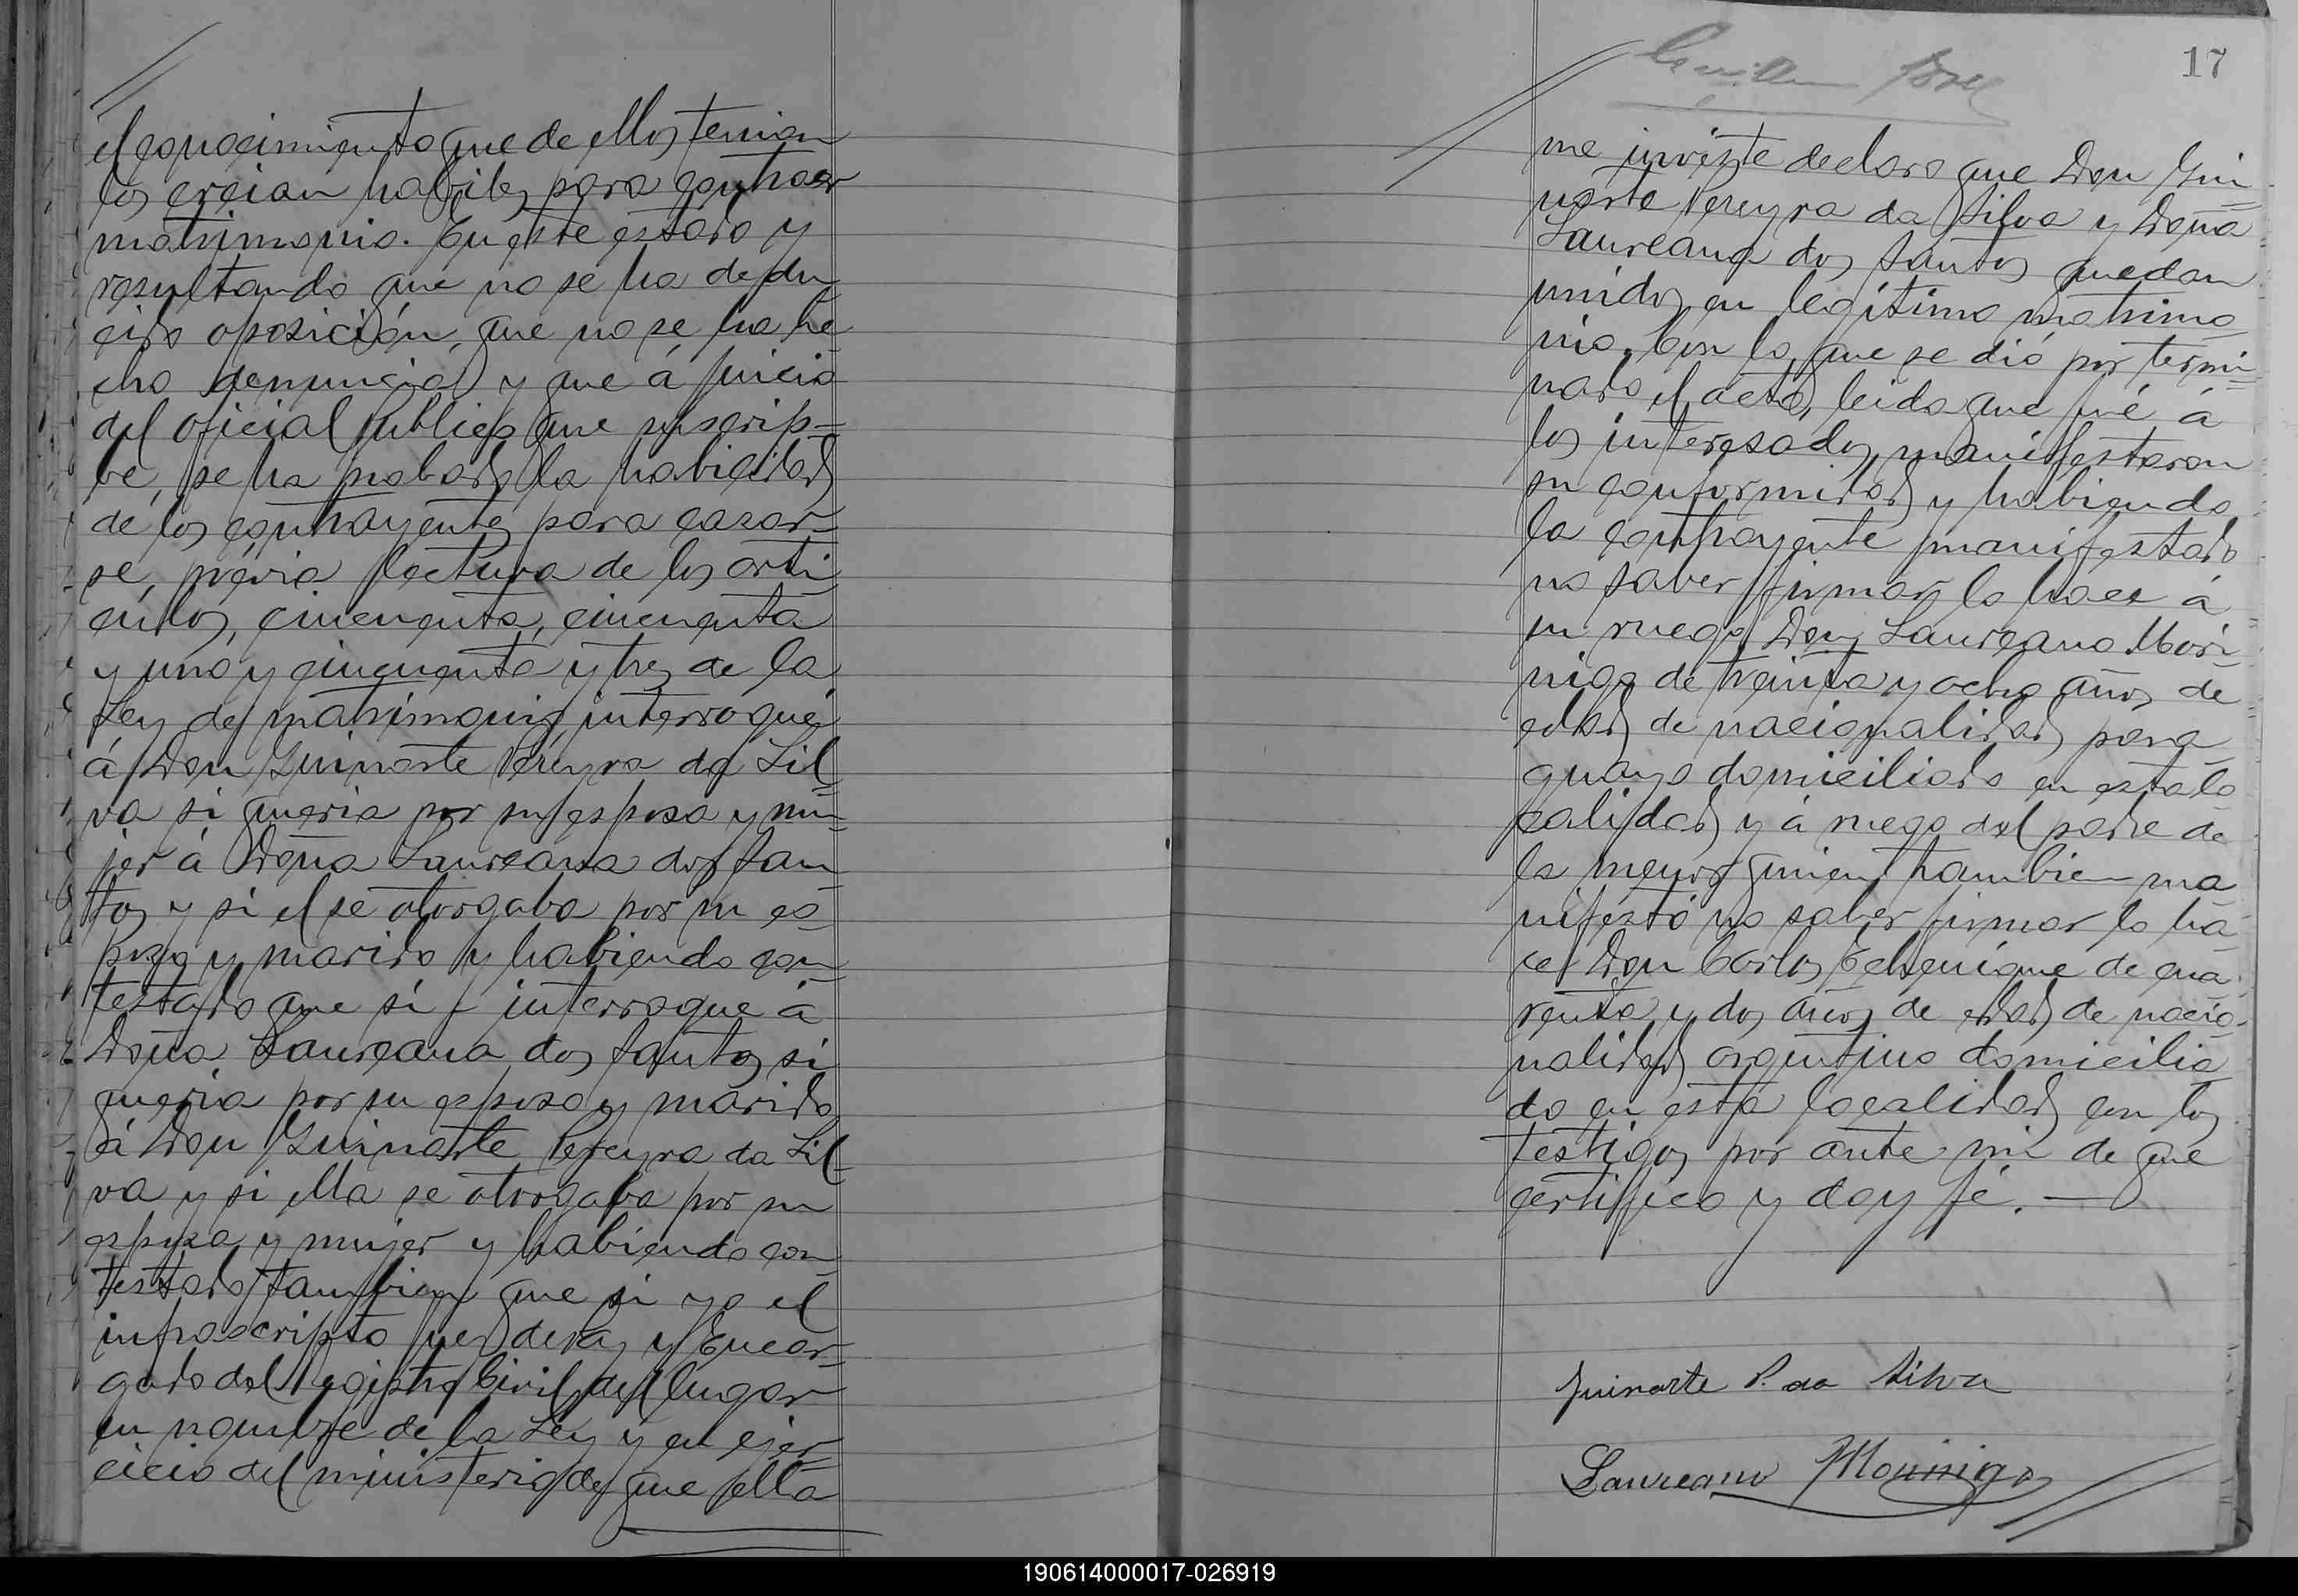 el conocimiento que de ellos tenian
los creian habiles para contraer
matrimonio. En este estado y
resultando que no se ha dedu
cido oposición, que no se ha he
cho denuncia y que á juicio
del oficial publico que suscrip-
be, se ha probado la habilidad
de los contrayentes para casar-
se, prévia lectura de los arti
culos, cincuenta, cincuenta
y uno y cincuenta y tres de la
Ley de matrimonio, interroqué
á Don Guinarte Pereyra da Sil
va si queria por su esposa y mu-
jer á Doña Laureana dos San
tos y si el se otorgaba por su es-
poso y marido y habiendo con
testado que si interroque á
Doña Laureana dos Santos si
queria por su esposo y marido
á Don Guinarte Pereyra da Sil-
va y si ella se otorgaba por su
esposa y mujer y habiendo con
testado tambien que si yo el
infrascripto juez de Paz y Encar-
gado del registro Civil del lugar
en nombre de la Ley y en ejer
cicio del ministerio de que ella
17
me inviste declaro que Don Gui-
narte Pereyra da Silva y Doña
Laureana dos Santos quedan
unidos en legítimo matrimo
nio. Con lo que se dió por termi-
nado el acto, leida que fué á
los interesados, manifestaron
su conformidad y habiendo
la contrayente manifestado
no saber firmar lo hace á
su ruego Don Laureano Mori-
nigo de treinta y ocho años de
edad de nacionalidad para
guayo domiciliado en esta lo
calidad y á ruego del padre de
la menor quien tambien ma
nifestó no saber firmar lo ha-
ce Don Carlos Echenique de cua-
renta y dos años de edad de nacio-
nalidad argentino domicilia
do en esta localidad con los
testigos por ante mi de que
certifico y doy fé.
Guinarte P. da Silva
Laureano Morinigo
190614000017-026919